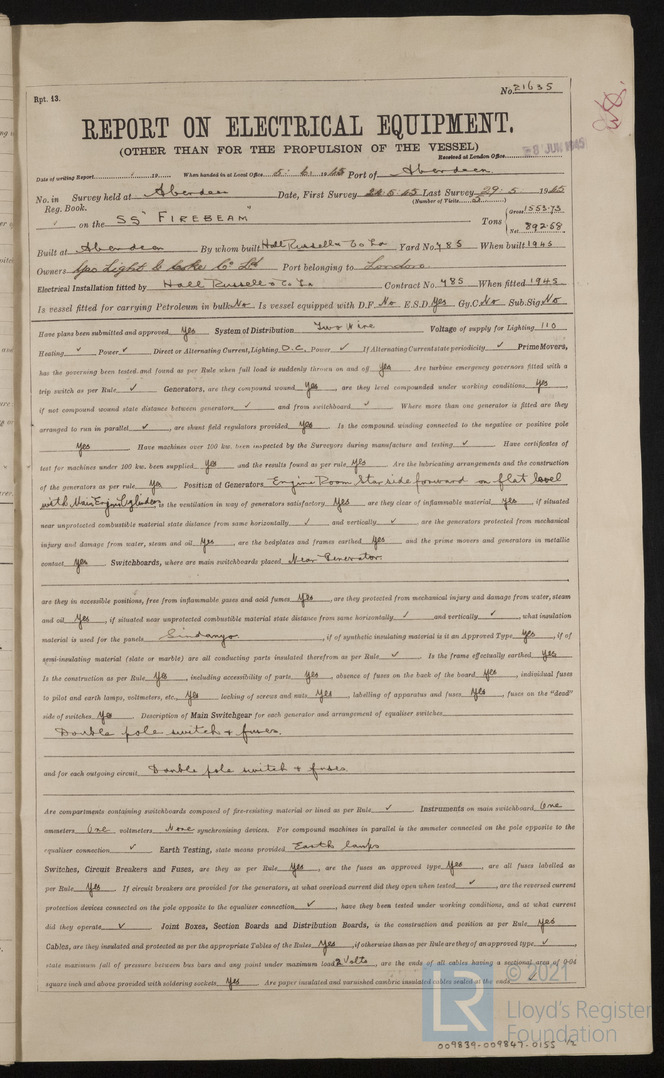 Rpt. 13.
No. 21635
REPORT ON ELECTRICAL EQUIPMENT.
(OTHER THAN FOR THE PROPULSION OF THE VESSEL)
Received at London Office 8 JUN 1945
Date of writing Report 19 When handed in at Local Office 5. 6. 1945 Port of Aberdeen
No. in Survey held at Aberdeen Date, First Survey 22.5.45 Last Survey 29.5. 1945
Reg. Book. (Number of Visits 3)
on the SS "FIREBEAM" Tons { Gross 1553.73
Net 892.68
Built at Aberdeen By whom built Hall Russell & Co Ld Yard No. 785 When built 1945
Owners Gas Light & Coke Co Ltd Port belonging to London
Electrical Installation fitted by Hall Russell & Co Ld Contract No. 785 When fitted 1945
Is vessel fitted for carrying Petroleum in bulk No Is vessel equipped with D.F. No E.S.D. Yes Gy.C. No Sub.Sig. No
Have plans been submitted and approved Yes System of Distribution Two Wire Voltage of supply for Lighting 110
Heating ✓ Power ✓ Direct or Alternating Current, Lighting D.C. Power ✓ If Alternating Current state periodicity ✓ Prime Movers,
has the governing been tested and found as per Rule when full load is suddenly thrown on and off Yes Are turbine emergency governors fitted with a
trip switch as per Rule ✓ Generators, are they compound wound Yes, are they level compounded under working conditions Yes,
if not compound wound state distance between generators ✓ and from switchboard ✓ Where more than one generator is fitted are they
arranged to run in parallel ✓, are shunt field regulators provided Yes Is the compound winding connected to the negative or positive pole
Yes Have machines over 100 kw. been inspected by the Surveyors during manufacture and testing ✓ Have certificates of
test for machines under 100 kw. been supplied Yes and the results found as per rule Yes Are the lubricating arrangements and the construction
of the generators as per rule Yes Position of Generators Engine Room Star side forward on flat level
with Main Engine Cylinders, is the ventilation in way of generators satisfactory Yes are they clear of inflammable material Yes, if situated
near unprotected combustible material state distance from same horizontally ✓ and vertically ✓ are the generators protected from mechanical
injury and damage from water, steam and oil Yes, are the bedplates and frames earthed Yes and the prime movers and generators in metallic
contact Yes Switchboards, where are main switchboards placed Near Generator.
are they in accessible positions, free from inflammable gases and acid fumes Yes, are they protected from mechanical injury and damage from water, steam
and oil Yes, if situated near unprotected combustible material state distance from same horizontally ✓ and vertically ✓, what insulation
material is used for the panels Sindanyo, if of synthetic insulating material is it an Approved Type Yes, if of
semi-insulating material (slate or marble) are all conducting parts insulated therefrom as per Rule ✓ Is the frame effectually earthed Yes
Is the construction as per Rule Yes, including accessibility of parts Yes, absence of fuses on the back of the board Yes, individual fuses
to pilot and earth lamps, voltmeters, etc. Yes locking of screws and nuts Yes, labelling of apparatus and fuses Yes, fuses on the "dead"
side of switches Yes Description of Main Switchgear for each generator and arrangement of equaliser switches
Double pole switch & fuses.
and for each outgoing circuit Double pole switch & fuses.
Are compartments containing switchboards composed of fire-resisting material or lined as per Rule ✓ Instruments on main switchboard One
ammeters One voltmeters None synchronising devices. For compound machines in parallel is the ammeter connected on the pole opposite to the
equaliser connection ✓ Earth Testing, state means provided Earth lamps
Switches, Circuit Breakers and Fuses, are they as per Rule Yes, are the fuses an approved type Yes, are all fuses labelled as
per Rule Yes If circuit breakers are provided for the generators, at what overload current did they open when tested ✓, are the reversed current
protection devices connected on the pole opposite to the equaliser connection ✓, have they been tested under working conditions, and at what current
did they operate ✓ Joint Boxes, Section Boards and Distribution Boards, is the construction and position as per Rule Yes
Cables, are they insulated and protected as per the appropriate Tables of the Rules Yes, if otherwise than as per Rule are they of an approved type ✓,
state maximum fall of pressure between bus bars and any point under maximum load 2 Volts, are the ends of all cables having a sectional area of 0.04
square inch and above provided with soldering sockets Yes Are paper insulated and varnished cambric insulated cables sealed at the ends
LR © 2021
Lloyd's Register
Foundation
009839-009847-0155 1/2